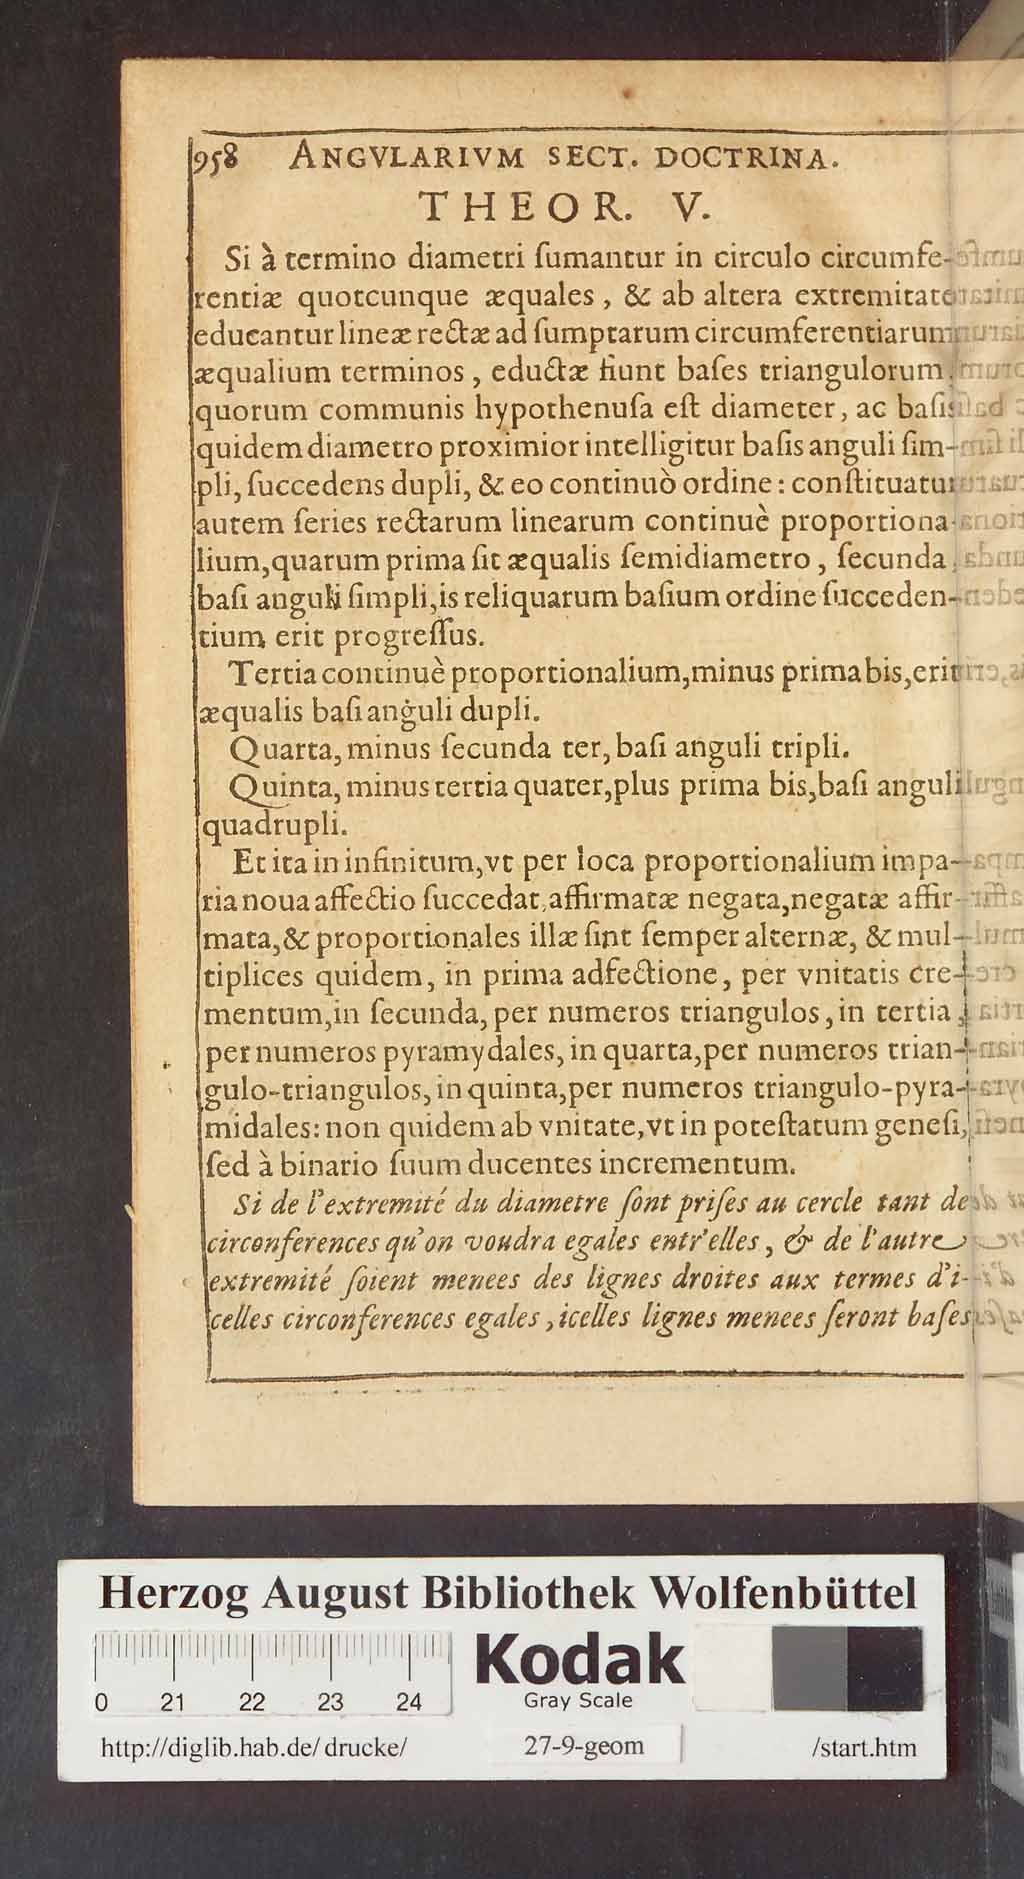 958 ANGVLARIVM SECT. DOCTRINA.
THEOR. V.
Si à termino diametri ſumantur in circulo circumfe-
rentiæ quotcunque æquales, & ab altera extremitate
educantur lineæ rectæ ad ſumptarum circumferentiarum
æqualium terminos, eductæ fiunt baſes triangulorum,
quorum communis hypothenuſa eſt diameter, ac baſis
quidem diametro proximior intelligitur baſis anguli ſim-
pli, ſuccedens dupli, & eo continuò ordine: conſtituatur
autem ſeries rectarum linearum continuè proportiona-
lium, quarum prima ſit æqualis ſemidiametro, ſecunda
baſi anguli ſimpli, is reliquarum baſium ordine ſucceden-
tium erit progreſſus.
Tertia continuè proportionalium, minus prima bis, erit
æqualis baſi anguli dupli.
Quarta, minus ſecunda ter, baſi anguli tripli.
Quinta, minus tertia quater, plus prima bis, baſi anguli
quadrupli.
Et ita in infinitum, vt per loca proportionalium impa-
ria noua affectio ſuccedat, affirmatæ negata, negatæ affir-
mata, & proportionales illæ ſint ſemper alternæ, & mul-
tiplices quidem, in prima adfectione, per vnitatis cre-
mentum, in ſecunda, per numeros triangulos, in tertia,
per numeros pyramydales, in quarta, per numeros trian-
gulo-triangulos, in quinta, per numeros triangulo-pyra-
midales: non quidem ab vnitate, vt in poteſtatum geneſi,
ſed à binario ſuum ducentes incrementum.
Si de l'extremité du diametre ſont priſes au cercle tant de
circonferences qu'on voudra egales entr'elles, & de l'autre
extremité ſoient menees des lignes droites aux termes d'i-
celles circonferences egales, icelles lignes menees ſeront baſes
Herzog August Bibliothek Wolfenbüttel
Kodak
Gray Scale
0 21 22 23 24
http://diglib.hab.de/drucke/ 27-9-geom /start.htm